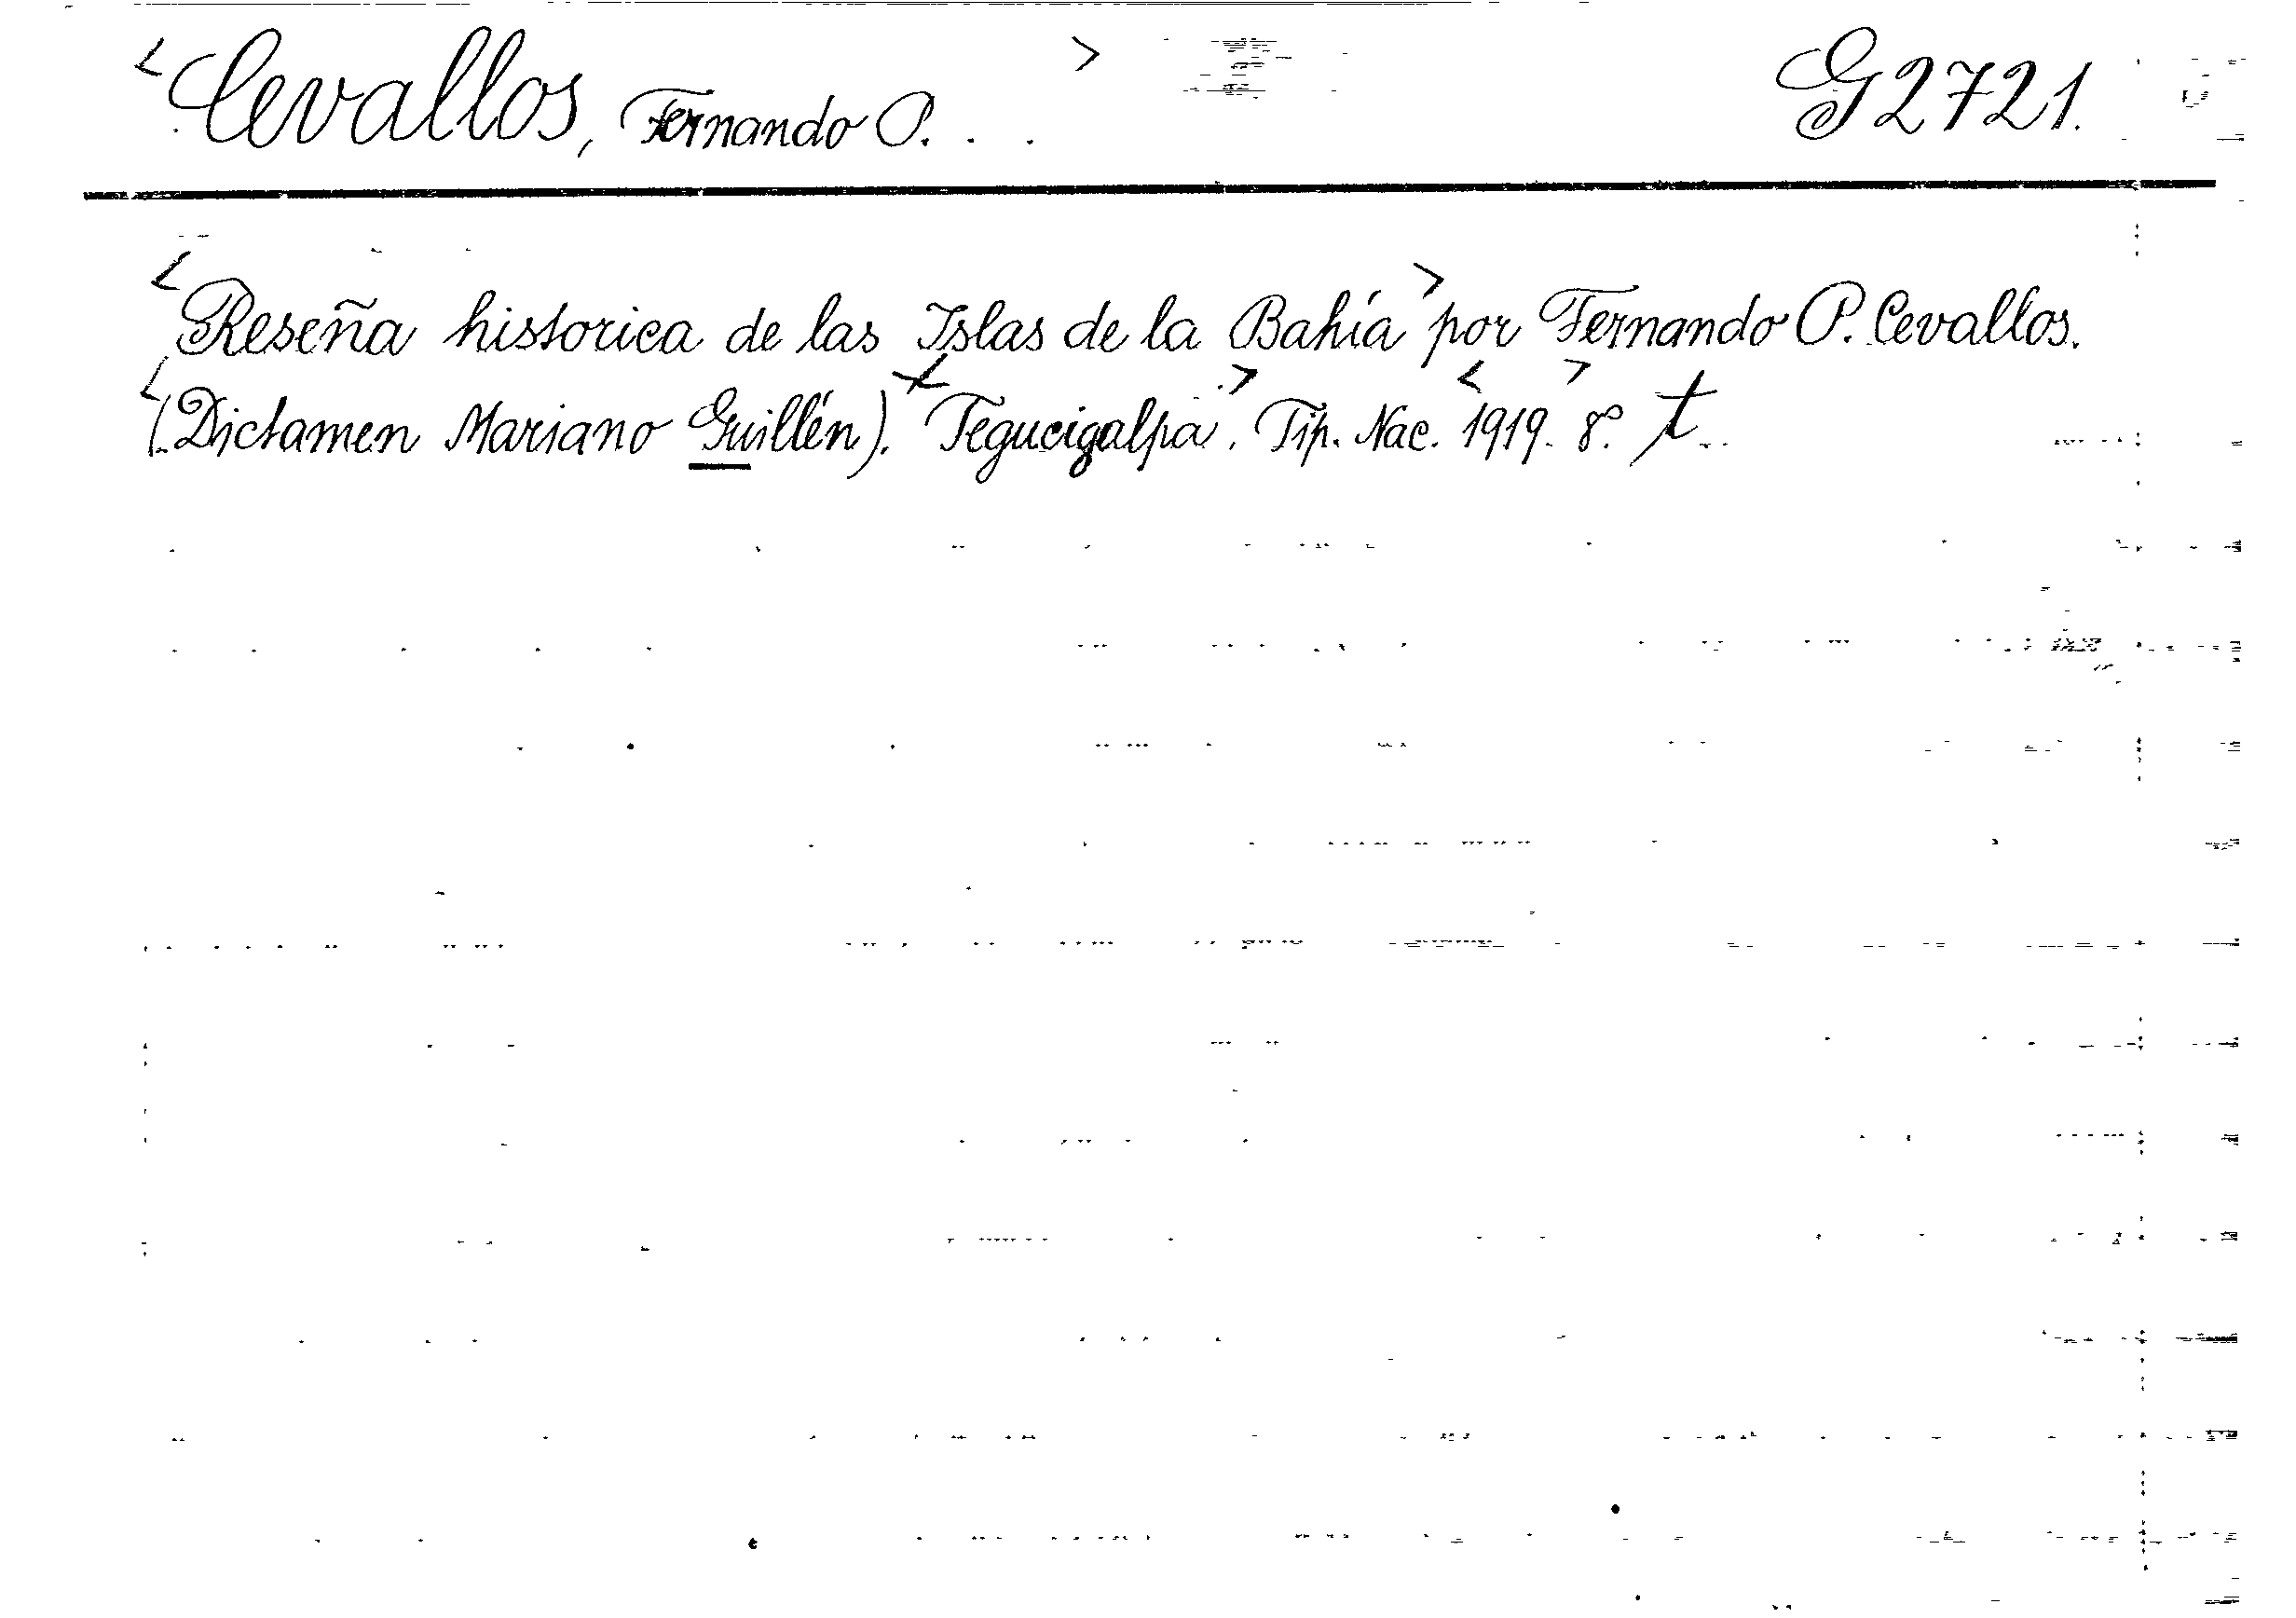 <Cevallos, Fernando P. . . > G2721.
<Reseña historica de las Islas de la Bahía> por Fernando P. Cevallos.
<(Dictamen Mariano Guillén). <Tegucigalpa>. Tip. Nac. <1919>. 8º. t